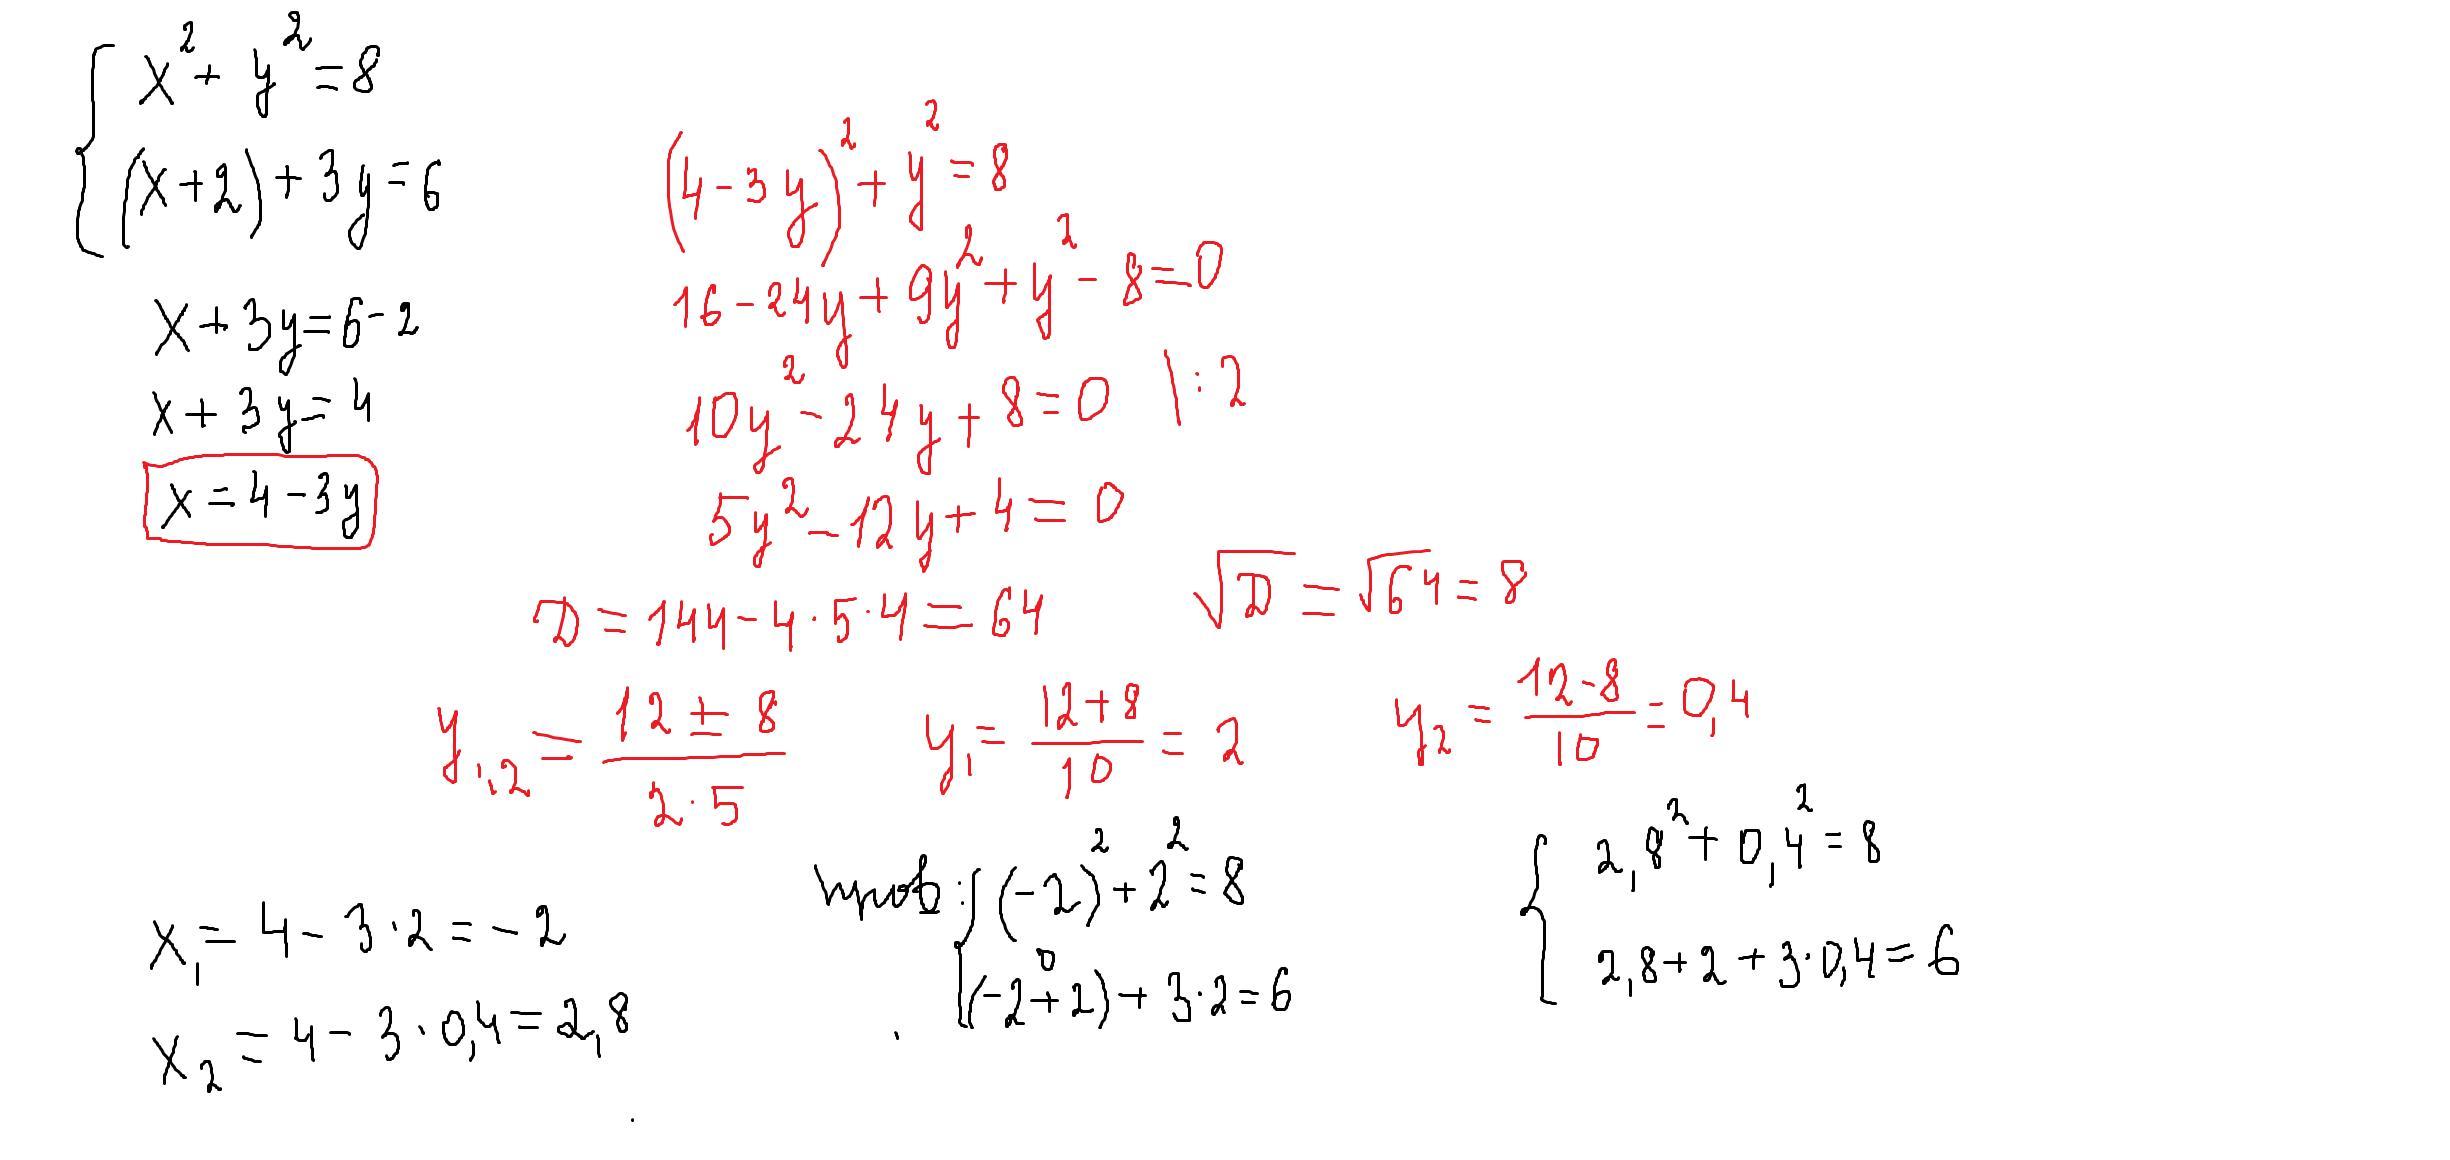 x² + y² = 8
(x+2) + 3y = 6
x + 3y = 6 - 2
x + 3y = 4
x = 4 - 3y
(4 - 3y)² + y² = 8
16 - 24y + 9y² + y² - 8 = 0
10y² - 24y + 8 = 0 | : 2
5y² - 12y + 4 = 0
D = 144 - 4 · 5 · 4 = 64
√D = √64 = 8
y₁,₂ = (12 ± 8)/(2 · 5)
y₁ = (12 + 8)/10 = 2
y₂ = (12 - 8)/10 = 0,4
x₁ = 4 - 3 · 2 = -2
x₂ = 4 - 3 · 0,4 = 2,8
пров: (-2)² + 2² = 8
0
(-2 + 2) + 3 · 2 = 6
2,8² + 0,4² = 8
2,8 + 2 + 3 · 0,4 = 6